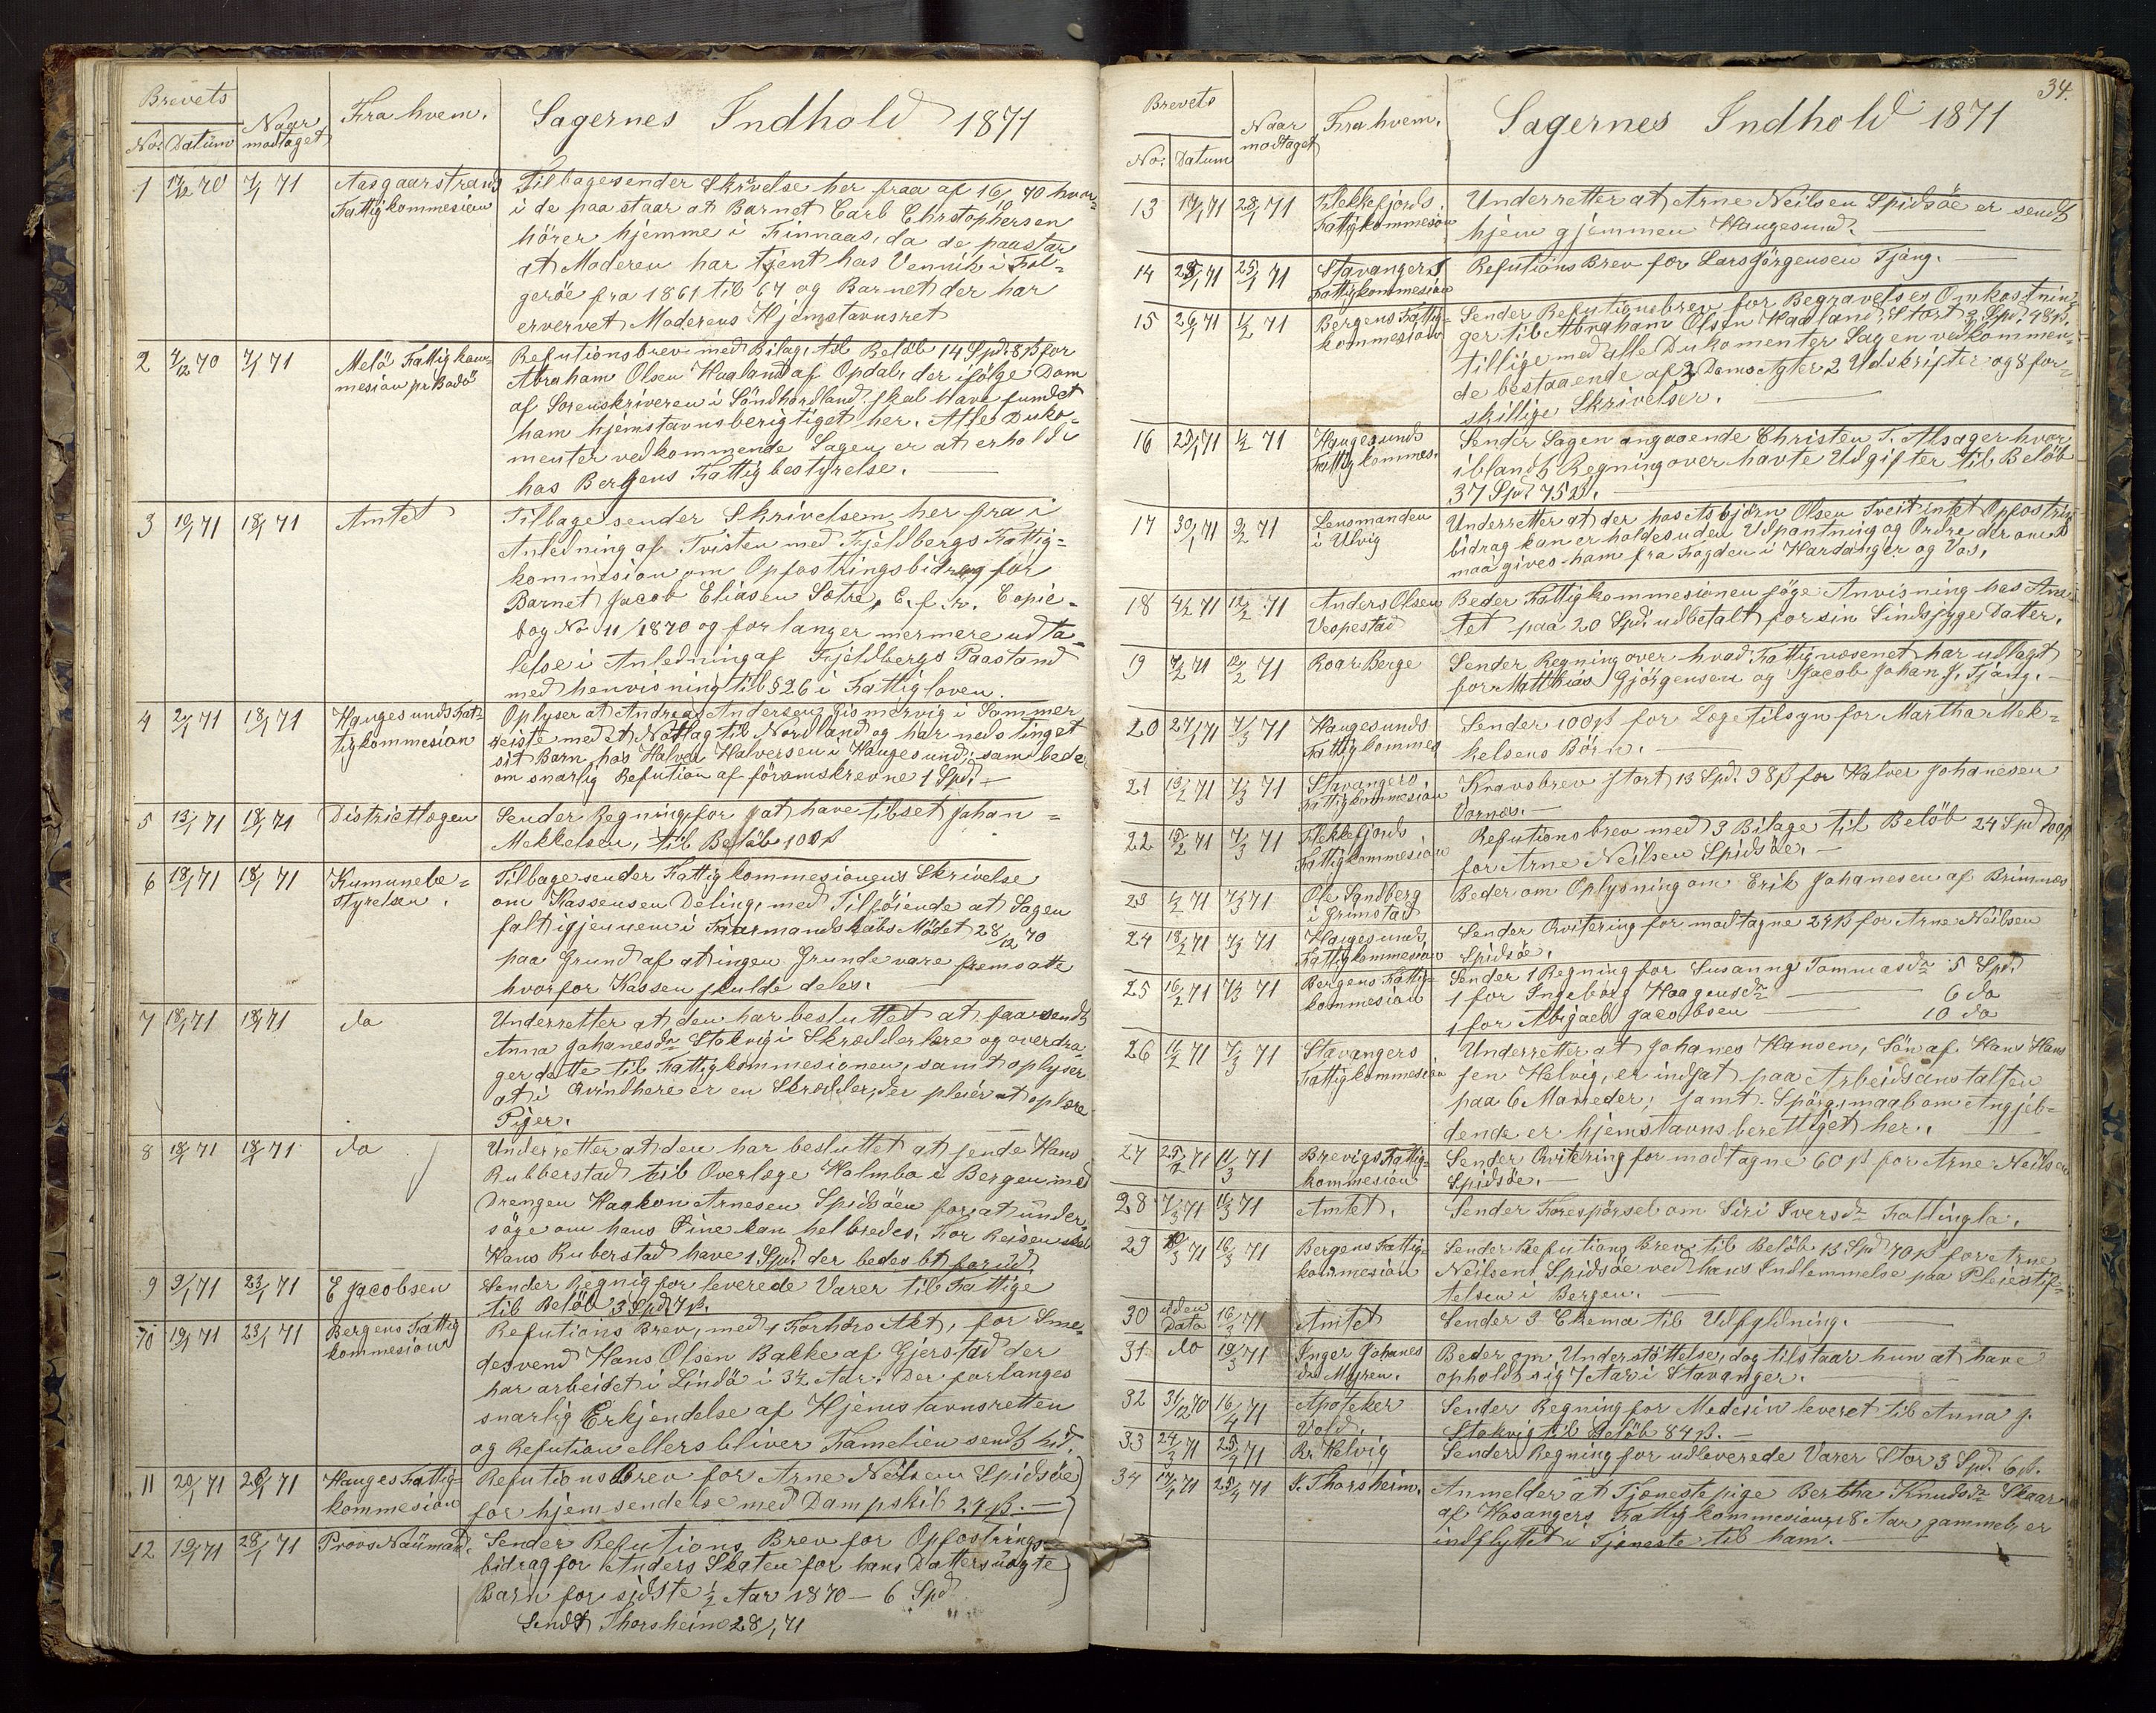 Brevets
No: Datum
Naar modtaget
Fra hvem.
Sagernes Indhold 1871
1 17/12 70 7/1 71 Aasgaarstrands Tilbagesender Skrivelse her fraa af 16/10 70 hvor-
Fattigkommesion i de paa staar at Barnet Carl Christophersen
hörer hjemme i Finnaas, da de paastaar
at Moderen har tjent hos Vennik i Fol-
geröe fra 1861 til 67 og Barnet der har
ervervet Moderens Hjemstavnsret
2 4/12 70 7/1 71 Melö Fattigkom- Refutionsbrev med Bilag, til Belöb 14 Spd. 8 β for
mesion pr Bodö Abraham Olsen Haaland af Opdal, der ifölge Dom
af Sorenskriveren i Söndhordland skal have fundet
ham hjemstavnsberigtiget her. Alle Duko-
menter vedkommende Sagen er at erholde
hos Bergens Fattigbestyrelse.
3 10/1 71 18/1 71 Amtet Tilbagesender Skrivelsen her fra i
Anledning af Tvisten med Fjeldbergs Fattig-
kommesion om Opfostringsbidrag for
Barnet Jacob Eliasen Sætre, C. f. h. Copie-
bog No 11/1870 og forlanger mermere udta-
lelse i Anledning af Fjeldbergs Paastand
med henvisning til § 26 i Fattigloven.
4 2/1 71 18/1 71 Haugesunds Fat- Oplyser at Andreas Andersen Gismervig i Sommer
tigkommesion reiste med et Notlag til Nordland og har nedstinget
sit Barn hos Halvor Halversen i Haugesund; sam beder
om snarlig Refution af föromskrevne 1 Spd.
5 13/1 71 18/1 71 Districtlægen Sender Regning for at have tilset Johan
Mekkelsen, til Belöb 100 β
6 18/1 71 18/1 71 Kumunebe- Tilbagesender Fattigkommesionens Skrivelse
styrelsen. om Kassensen Deling, med Tilföiende at Sagen
falt igjennem i Formandskabs Mödet 28/12 70
paa Grund af at ingen Grunde vare fremsatte
hvorfor Kassen skulde deles.
7 18/1 71 18/1 71 do Underretter at den har besluttet at faa sendt
Anna Johanesdr Stokvig i Skrædderlære og overdra-
ger dette til Fattigkommesionen, samt oplyser
at i Qvindhere er en Skrædder, der pleier at oplære
Piger.
8 18/1 71 18/1 71 do Underretter at den har besluttet at sende Hans
Rubberstad til Overlæge Holmbo i Bergen med
Drengen Haakon Arnesen Spidsöen for at under-
söge om hans Öine kan helbredes. For Reisen skal
Hans Ruberstad have 1 Spd. der bedes bt forud.
9 9/1 71 23/1 71 E Jacobsen Sender Regnig for leverede Varer til Fattige
til Belöb 3 Spd. 7 β.
10 19/1 71 23/1 71 Bergens Fattig Refutions Brev, med 1 Forhörs Akt, for Sme-
kommesion desvend Hans Olsen Bakke af Gjerstad der
har arbeidet i Lindö i 3½ Aar. Der forlanges
snarlig Erkjendelse af Hjemstavnsretten
og Refution ellers bliver Familien sendt hid.
11 20/1 71 26/1 71 Hauges Fattig- Refutions Brev for Arne Neilsen Spidsöe
kommesion for hjemsendelse med Dampskib 24 β.
12 19/1 71 28/1 71 Provs Naümad. Sender Refutions Brev for Opfostrings-
bidrag for Anders Skaten for hans Datters uægte
Barn for sidste ½ Aar 1870 - 6 Spd
Sendt Thorsheim 28/1 71
34.
Brevets
No: Datum
Naar modtaget
Fra hvem.
Sagernes Indhold 1871
13 17/1 71 28/1 71 Flekkefjords Underretter at Arne Neilsen Spidsöe er sendt
Fattigkommesion hjem gjemmen Haugesund.
14 23/1 71 25/1 71 Stavangers Refutions Brev for Lars Jörgensen Tjong.
Fattigkommesion
15 26/1 71 1/2 71 Bergens Fattig- Sender Refutionsbrev for Begravelses Omkostnin-
kommesion ger til Abraham Olsen Haaland, Stort 3 Spd. 48 β.
tillige med alle Dukomenter Sagen vedkommen-
de bestaaende af 2 Doms Agter 2 Udskrifter og 8 for-
skillige Skrivelser.
16 29/1 71 1/2 71 Haugesunds Sender Sagen angaaende Christen T. Alsager hvor
Fattigkommes. iblandt Regning over havte Udgifter til Belöb
37 Spd 75 β.
17 30/1 71 9/2 71 Lensmanden Underretter at der hos Asbjörn Olsen Tveit intet Opfostrings
i Ulvig bidrag kan erholdes uden Udpantning og Ordre derom
maa gives ham fra Fogden i Hardanger og Vos.
18 4/2 71 12/2 71 Anders Olsen Beder Fattigkommesionen söge Anvisning hos Am-
Vespestad tet paa 20 Spd. udbetalt for sin Sindssyge Datter.
19 7/2 71 12/2 71 Roar Berge Sender Regning over hvad Fattigvæsenet har udlagt
for Matthias Gjörgensen og Jacob Johan J. Tjong.
20 27/1 71 7/3 71 Haugesunds Sender 100 β for Lægetilsyn for Martha Mek-
Fattigkommes kelsens Börn.
21 13/2 71 7/3 71 Stavangers Kravsbrev stort 13 Spd. 98 β for Halver Johanesen
Fattigkommesion Vornes.
22 15/2 71 7/3 71 Flekkefjords Refutionsbrev med 3 Bilage til Belöb 24 Spd 100 β
Fattigkommesion for Arne Neilsen Spidsöe.
23 4/2 71 7/3 71 Ole Sandberg Beder om Oplysning om Erik Johanesen af Brimnes
i Grimstad
24 18/2 71 7/3 71 Haugesunds Sender Qvitering for modtagne 24 β for Arne Neilsen
Fattigkommesion Spidsöe.
25 16/2 71 7/3 71 Bergens Fattig- Sender 1 Regning for Susanna Tommasdr 5 Spd
kommesion 1 for Ingeborg Haagensdr 6 do
1 for Abigael Jacobsen 10 do
26 11/2 71 7/3 71 Stavangers Underretter at Johanes Hansen, Sön af Hans Han
Fattigkommesion sen Helvig, er indsat paa Arbeidsanstalten
paa 6 Maaneder; samt Spörgsmaal om Angjel-
dende er hjemstavnsberettiget her.
27 25/2 71 11/3 71 Brevigs Fattig- Sender Qvitering for modtagne 60 β for Arne Neilsen
kommesion Spidsöe.
28 7/3 71 16/3 71 Amtet. Sender Forespörsel om Siri Iversdr Fattingla.
29 10/3 71 16/3 71 Bergens Fattig- Sender Refutions Brev til Belöb 13 Spd 70 β for Arne
kommesion Neilsen Spidsöe ved hans Indlemmelse paa Pleiestif-
telsen i Bergen.
30 uden Dato 16/3 71 Amtet Sender 3 Skema til Udfyldning.
31 do 19/3 71 Inger Johanes Beder om Understöttelse, dog tilstaar hun at have
dr Myren. opholdt sig 7 Aar i Stavanger.
32 31/12 70 16/4 71 Apoteker Sender Regning for Medesin leveret til Anna J.
Vold. Stokvig til Belöb 84 β.
33 24/3 71 25/4 71 Br. Helvig Sender Regning for udleverede Varer Stor 3 Spd. 6 β.
34 17/4 71 25/4 71 T. Thorsheim. Anmelder at Tjenestepige Bertha Knudsdr Skaar
af Hosangers Fattigkommesion, 18 Aar gammel, er
indflyttet i Tjeneste til ham.